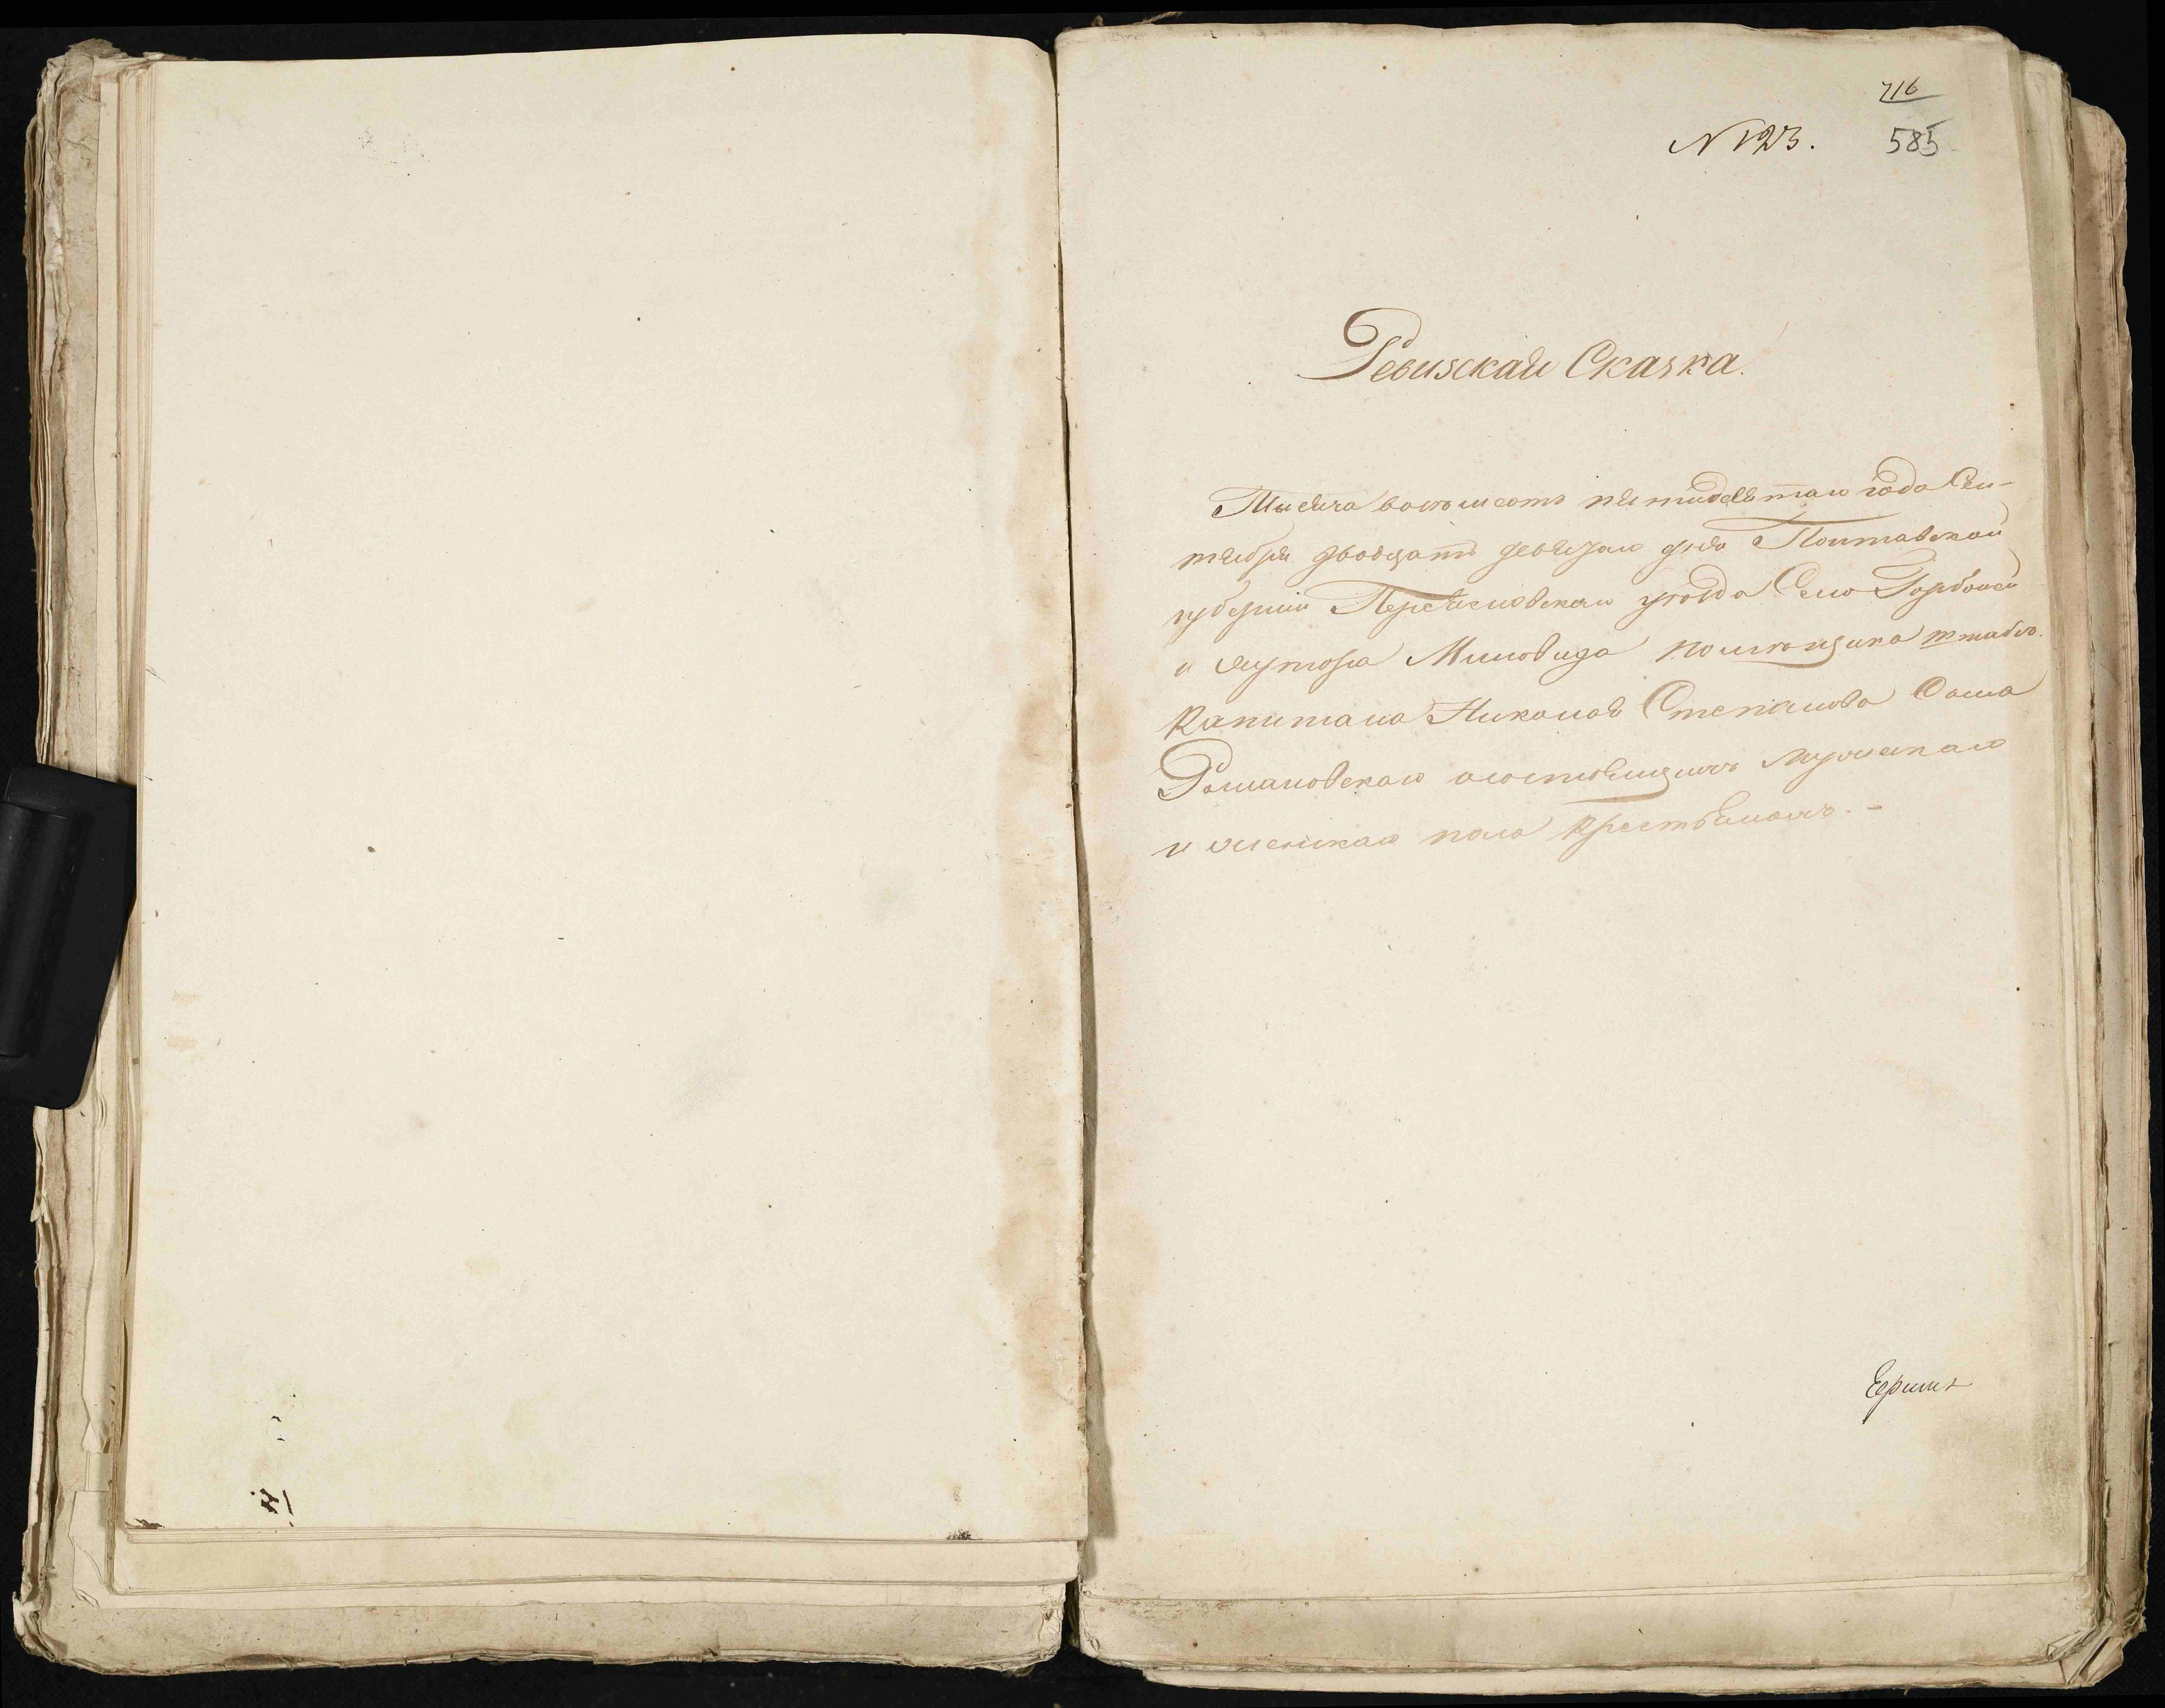 716
N 123. 585
Ревизская Сказка.
Тысяча восемсотъ пятидесятаго года Сен-
тября двадцать девятаго дня Полтавской
губерніи Переясловскаго уезда Села Горбаней
и хутора Миловида помѣщика штабсъ.
Капитана Николая Степанова Сына
Романовскаго о состоящихъ мужескаго
и женскаго пола крестьянахъ. -